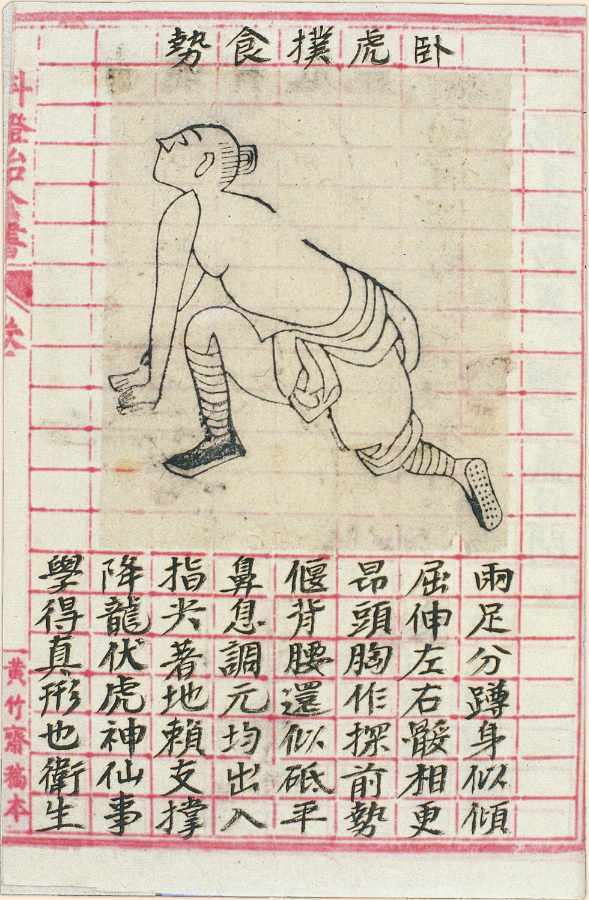 臥虎撲食勢
兩足分蹲身似傾
屈伸左右骽相更
昂頭胸作探前勢
偃背腰還似砥平
鼻息調元均出入
指尖著地賴支撐
降龍伏虎神仙事
學得真形也衛生
黃竹齋稿本